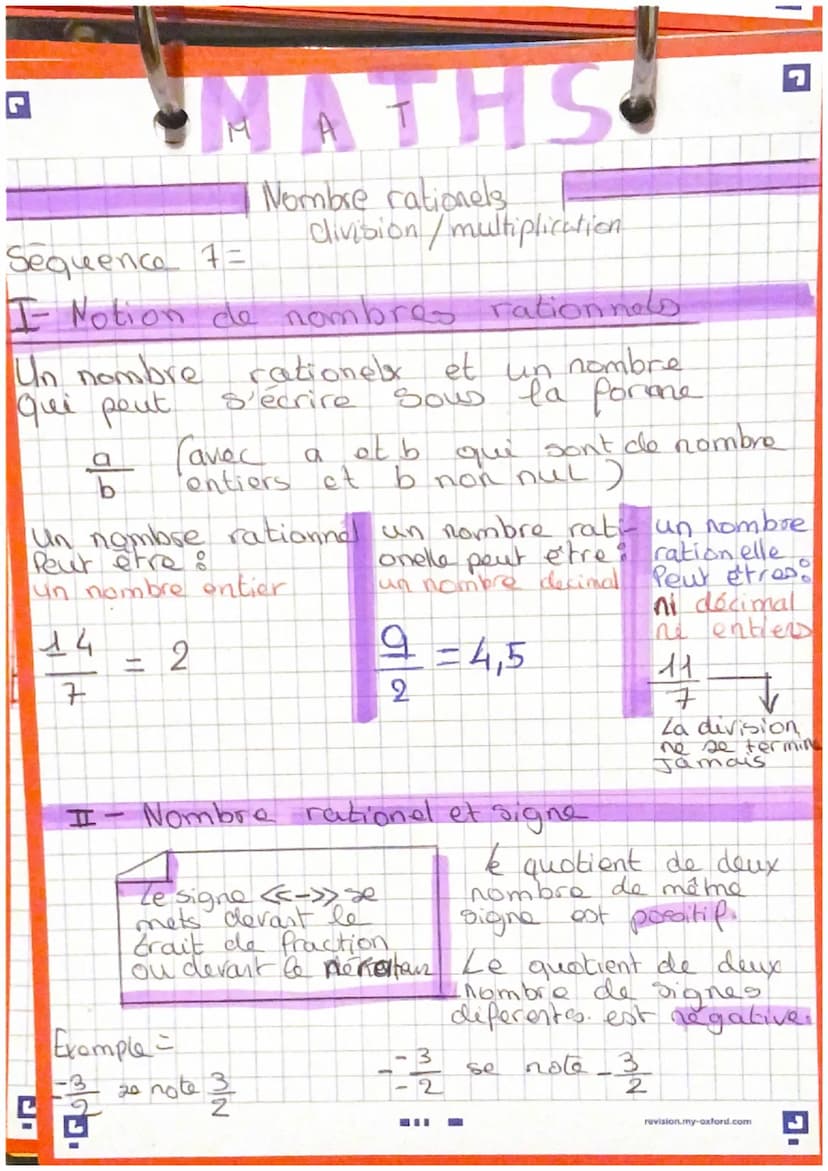 MATHS
M A T
Nombre rationels
division/multiplication
Séquence 7=
I- Notion de nombres rationnels
Un nombre rationels et un nombre
qui peut s'écrire sous la forme
a/b (avec a et b qui sont de nombre
entiers et b non nul)
Un nombre rationnel
Peut être :
un nombre entier
14/7 = 2
un nombre rati-
onelle peut être :
un nombre decimal
9/2 = 4,5
un nombre
rationelle
Peut êtres :
ni décimal
ni entiers
11/7
La division
ne se termine
Jamais
II- Nombre rationel et signe
Le signe <<->> se
mets devant le
trait de fraction
ou devant le
le quotient de deux
nombre de même
signe est positif.
Le quotient de deux
nombre de signes
diferentes. est négative.
Exemple =
-3/2 se note 3/2
- -3/-2 se note -3/2
revision.my-oxford.com